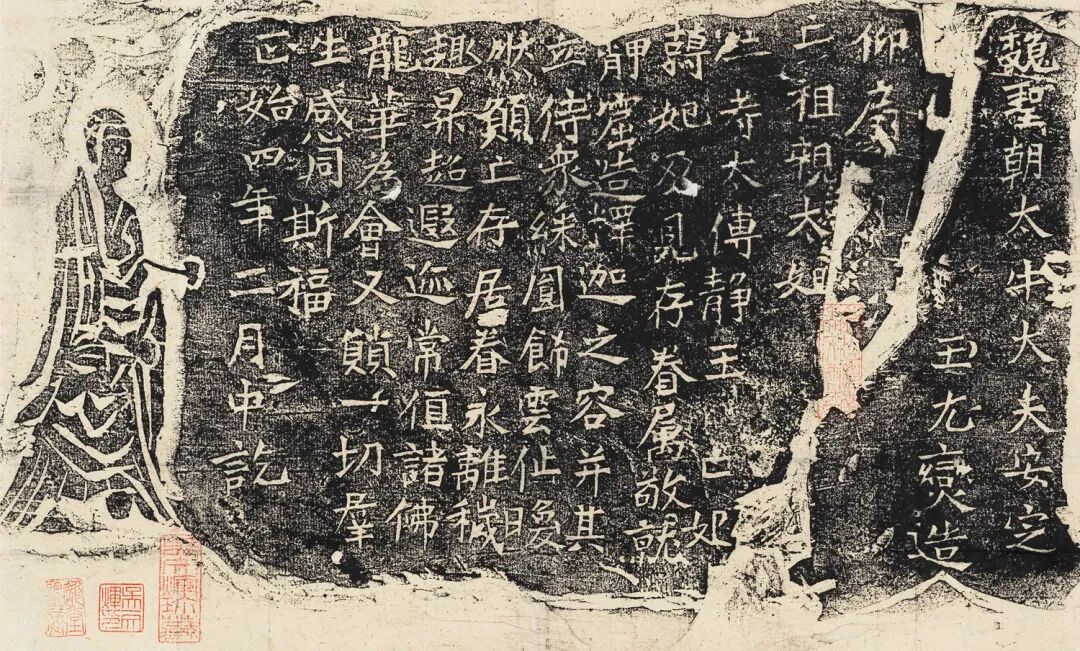 魏聖朝太中大夫安定
王元燮造
仰為
亡祖親太妃
亡考太傅靜王亡妣
蔣妃及見存眷屬敬就
靜窟造釋迦之容并其
立侍衆綵圓飾雲仙煥
然願亡存居眷永離穢
趣昇超遐迹常值諸佛
龍華為會又願一切羣
生咸同斯福
正始四年二月中訖